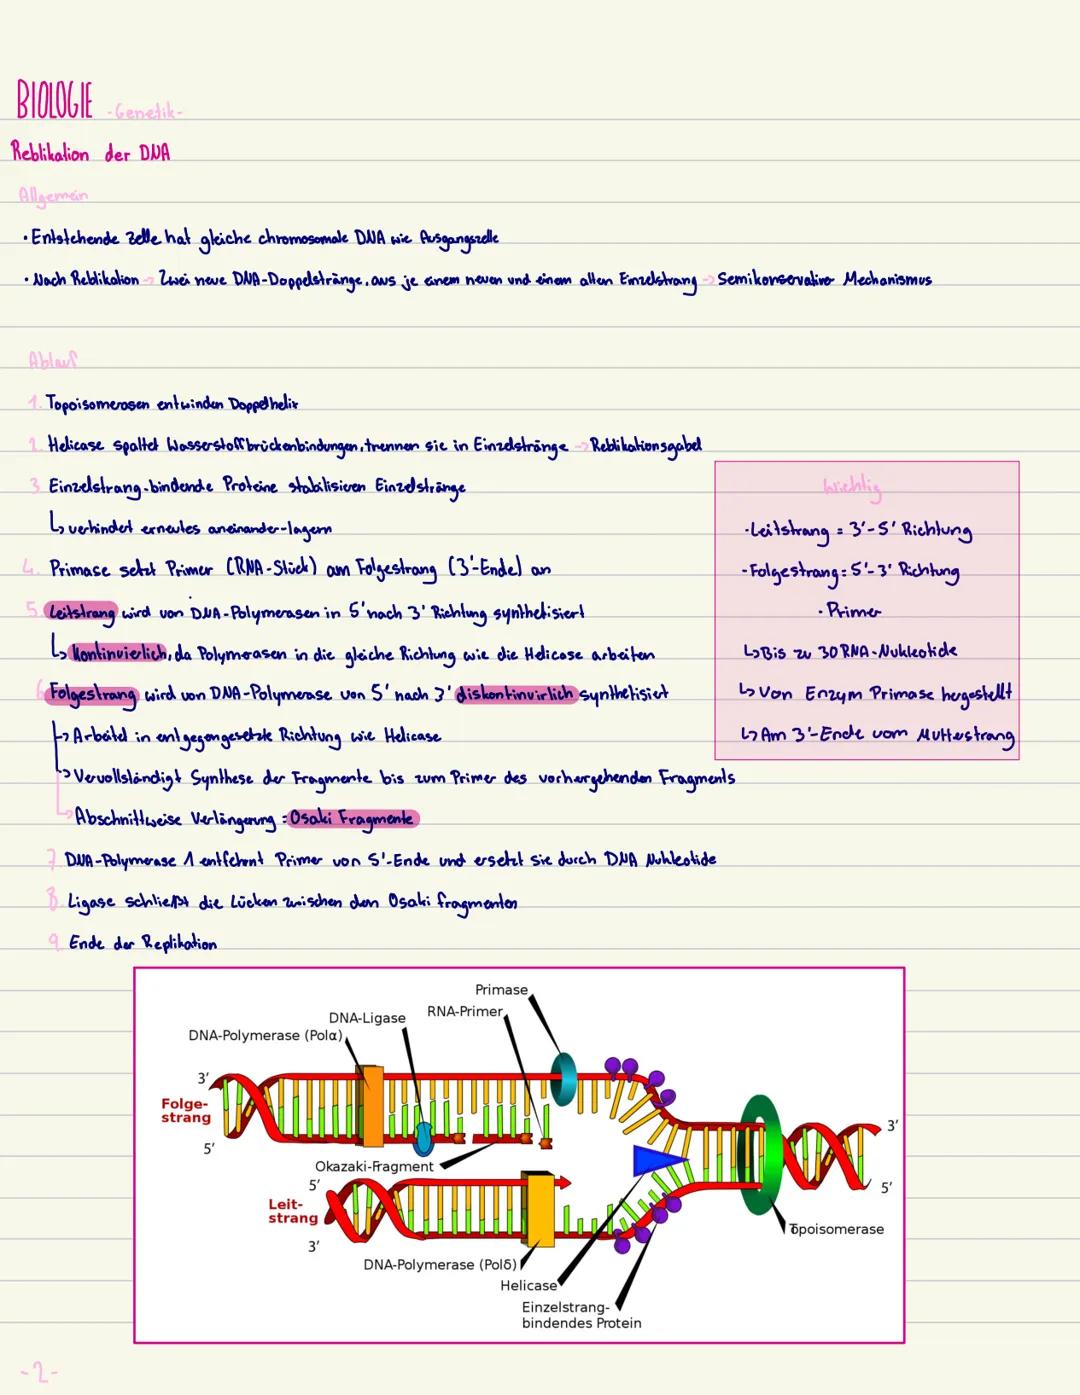 BIOLOGIE -Genetik-
Reblikation der DNA
Allgemein
· Entstehende Zelle hat gleiche chromosomale DNA wie Ausgangszelle
· Nach Reblikation → Zwei neue DNA-Doppelstränge, aus je einem neuen und einem alten Einzelstrang → Semikonservativer Mechanismus
Ablauf
1. Topoisomerasen entwinden Doppelhelix
2. Helicase spaltet Wasserstoffbrückenbindungen, trennen sie in Einzelstränge → Reblikationsgabel
3. Einzelstrang-bindende Proteine stabilisieren Einzelstränge
↳ verhindert erneutes aneinander-lagern
4. Primase setzt Primer (RNA-Stück) am Folgestrang (3'-Ende) an
5. Leitstrang wird von DNA-Polymerasen in 5' nach 3' Richtung synthetisiert
↳ Kontinuierlich, da Polymerasen in die gleiche Richtung wie die Helicase arbeiten
6. Folgestrang wird von DNA-Polymerase von 5' nach 3' diskontinuirlich synthetisiert
↳ Arbeitet in entgegengesetzte Richtung wie Helicase
↳ Vervollständigt Synthese der Fragmente bis zum Primer des vorhergehenden Fragments
↳ Abschnittweise Verlängerung = Osaki Fragmente
7. DNA-Polymerase 1 entfehrnt Primer von 5'-Ende und ersetzt sie durch DNA Nukleotide
8. Ligase schließt die Lücken zwischen den Osaki fragmenten
9. Ende der Replikation
Wichtig
· Leitstrang = 3'-5' Richtung
· Folgestrang = 5'-3' Richtung
· Primer
↳ Bis zu 30 RNA-Nukleotide
↳ Von Enzym Primase hergestellt
↳ Am 3'-Ende vom Mutterstrang
Primase
RNA-Primer
DNA-Ligase
DNA-Polymerase (Polα)
3'
Folge-
strang
5'
Okazaki-Fragment
5'
Leit-
strang
3'
DNA-Polymerase (Polδ)
Helicase
Einzelstrang-
bindendes Protein
Topoisomerase
3'
5'
-2-